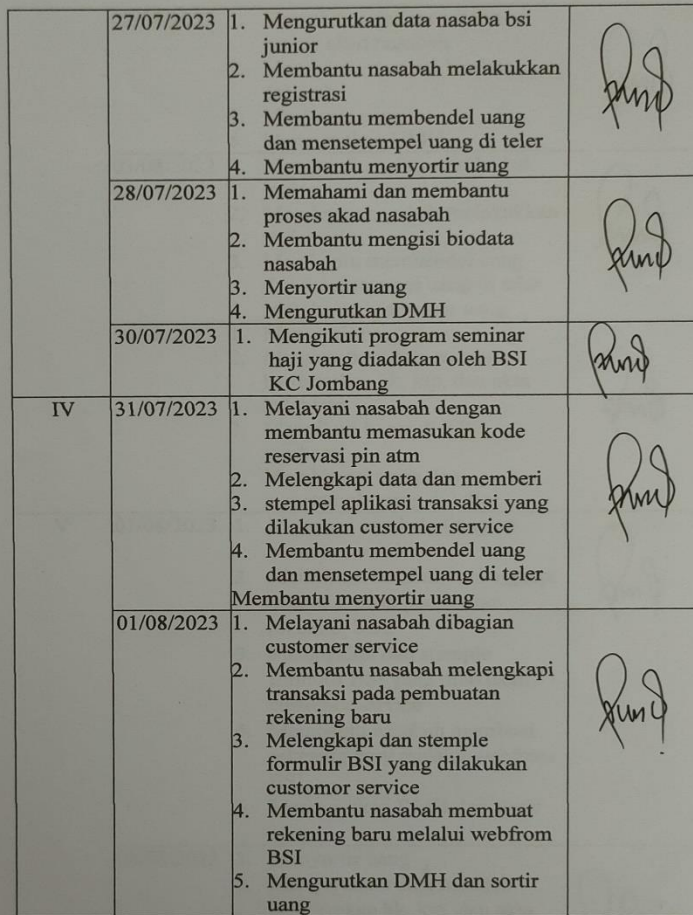 27/07/2023 1. Mengurutkan data nasaba bsi
junior
2. Membantu nasabah melakukkan
registrasi
3. Membantu membendel uang
dan mensetempel uang di teler
4. Membantu menyortir uang
28/07/2023 1. Memahami dan membantu
proses akad nasabah
2. Membantu mengisi biodata
nasabah
3. Menyortir uang
4. Mengurutkan DMH
30/07/2023 1. Mengikuti program seminar
haji yang diadakan oleh BSI
KC Jombang
IV 31/07/2023 1. Melayani nasabah dengan
membantu memasukan kode
reservasi pin atm
2. Melengkapi data dan memberi
3. stempel aplikasi transaksi yang
dilakukan customer service
4. Membantu membendel uang
dan mensetempel uang di teler
Membantu menyortir uang
01/08/2023 1. Melayani nasabah dibagian
customer service
2. Membantu nasabah melengkapi
transaksi pada pembuatan
rekening baru
3. Melengkapi dan stemple
formulir BSI yang dilakukan
customor service
4. Membantu nasabah membuat
rekening baru melalui webfrom
BSI
5. Mengurutkan DMH dan sortir
uang